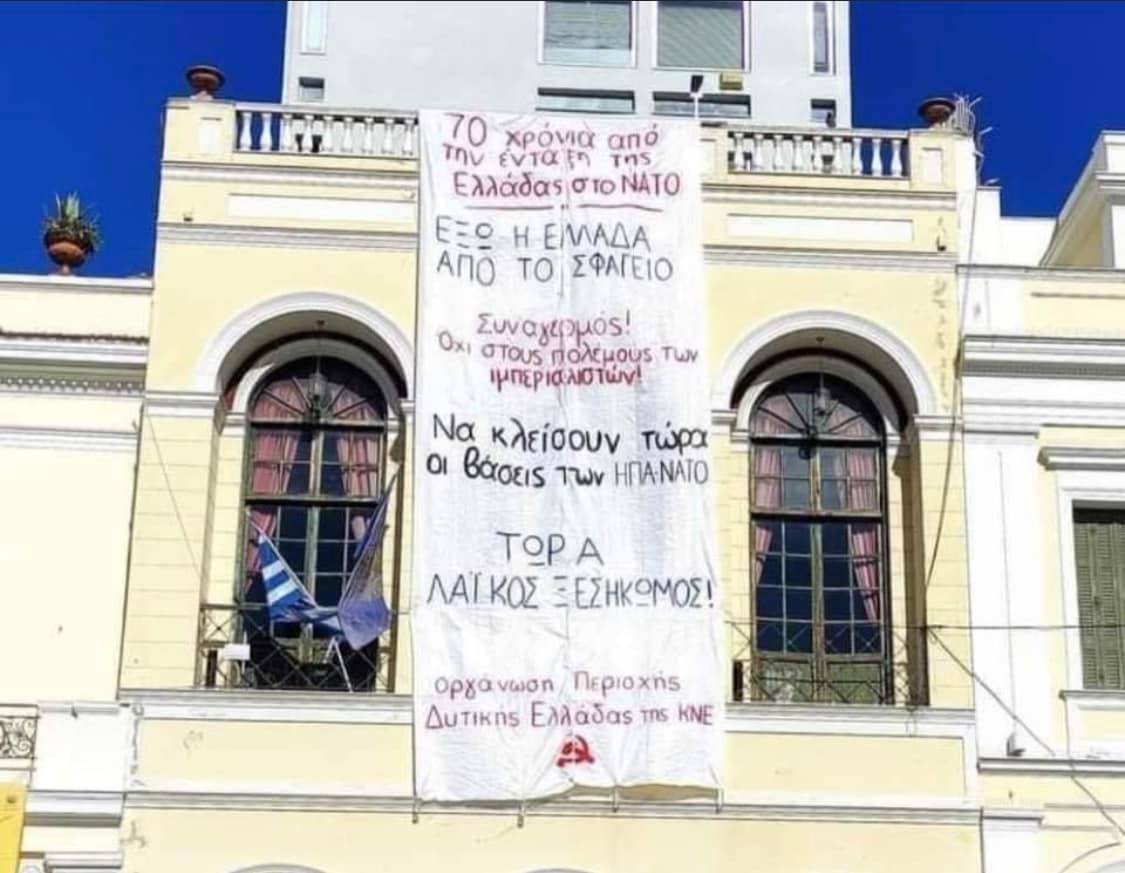 70 χρόνια από
την ένταξη της
Ελλάδας στο ΝΑΤΟ
ΕΞΩ Η ΕΛΛΑΔΑ
ΑΠΟ ΤΟ ΣΦΑΓΕΙΟ
Συναγερμός!
Όχι στους πολέμους των
ιμπεριαλιστών!
Να κλείσουν τώρα
οι βάσεις των ΗΠΑ-ΝΑΤΟ
ΤΩΡΑ
ΛΑΪΚΟΣ ΞΕΣΗΚΩΜΟΣ!
Οργάνωση Περιοχής
Δυτικής Ελλάδας της ΚΝΕ